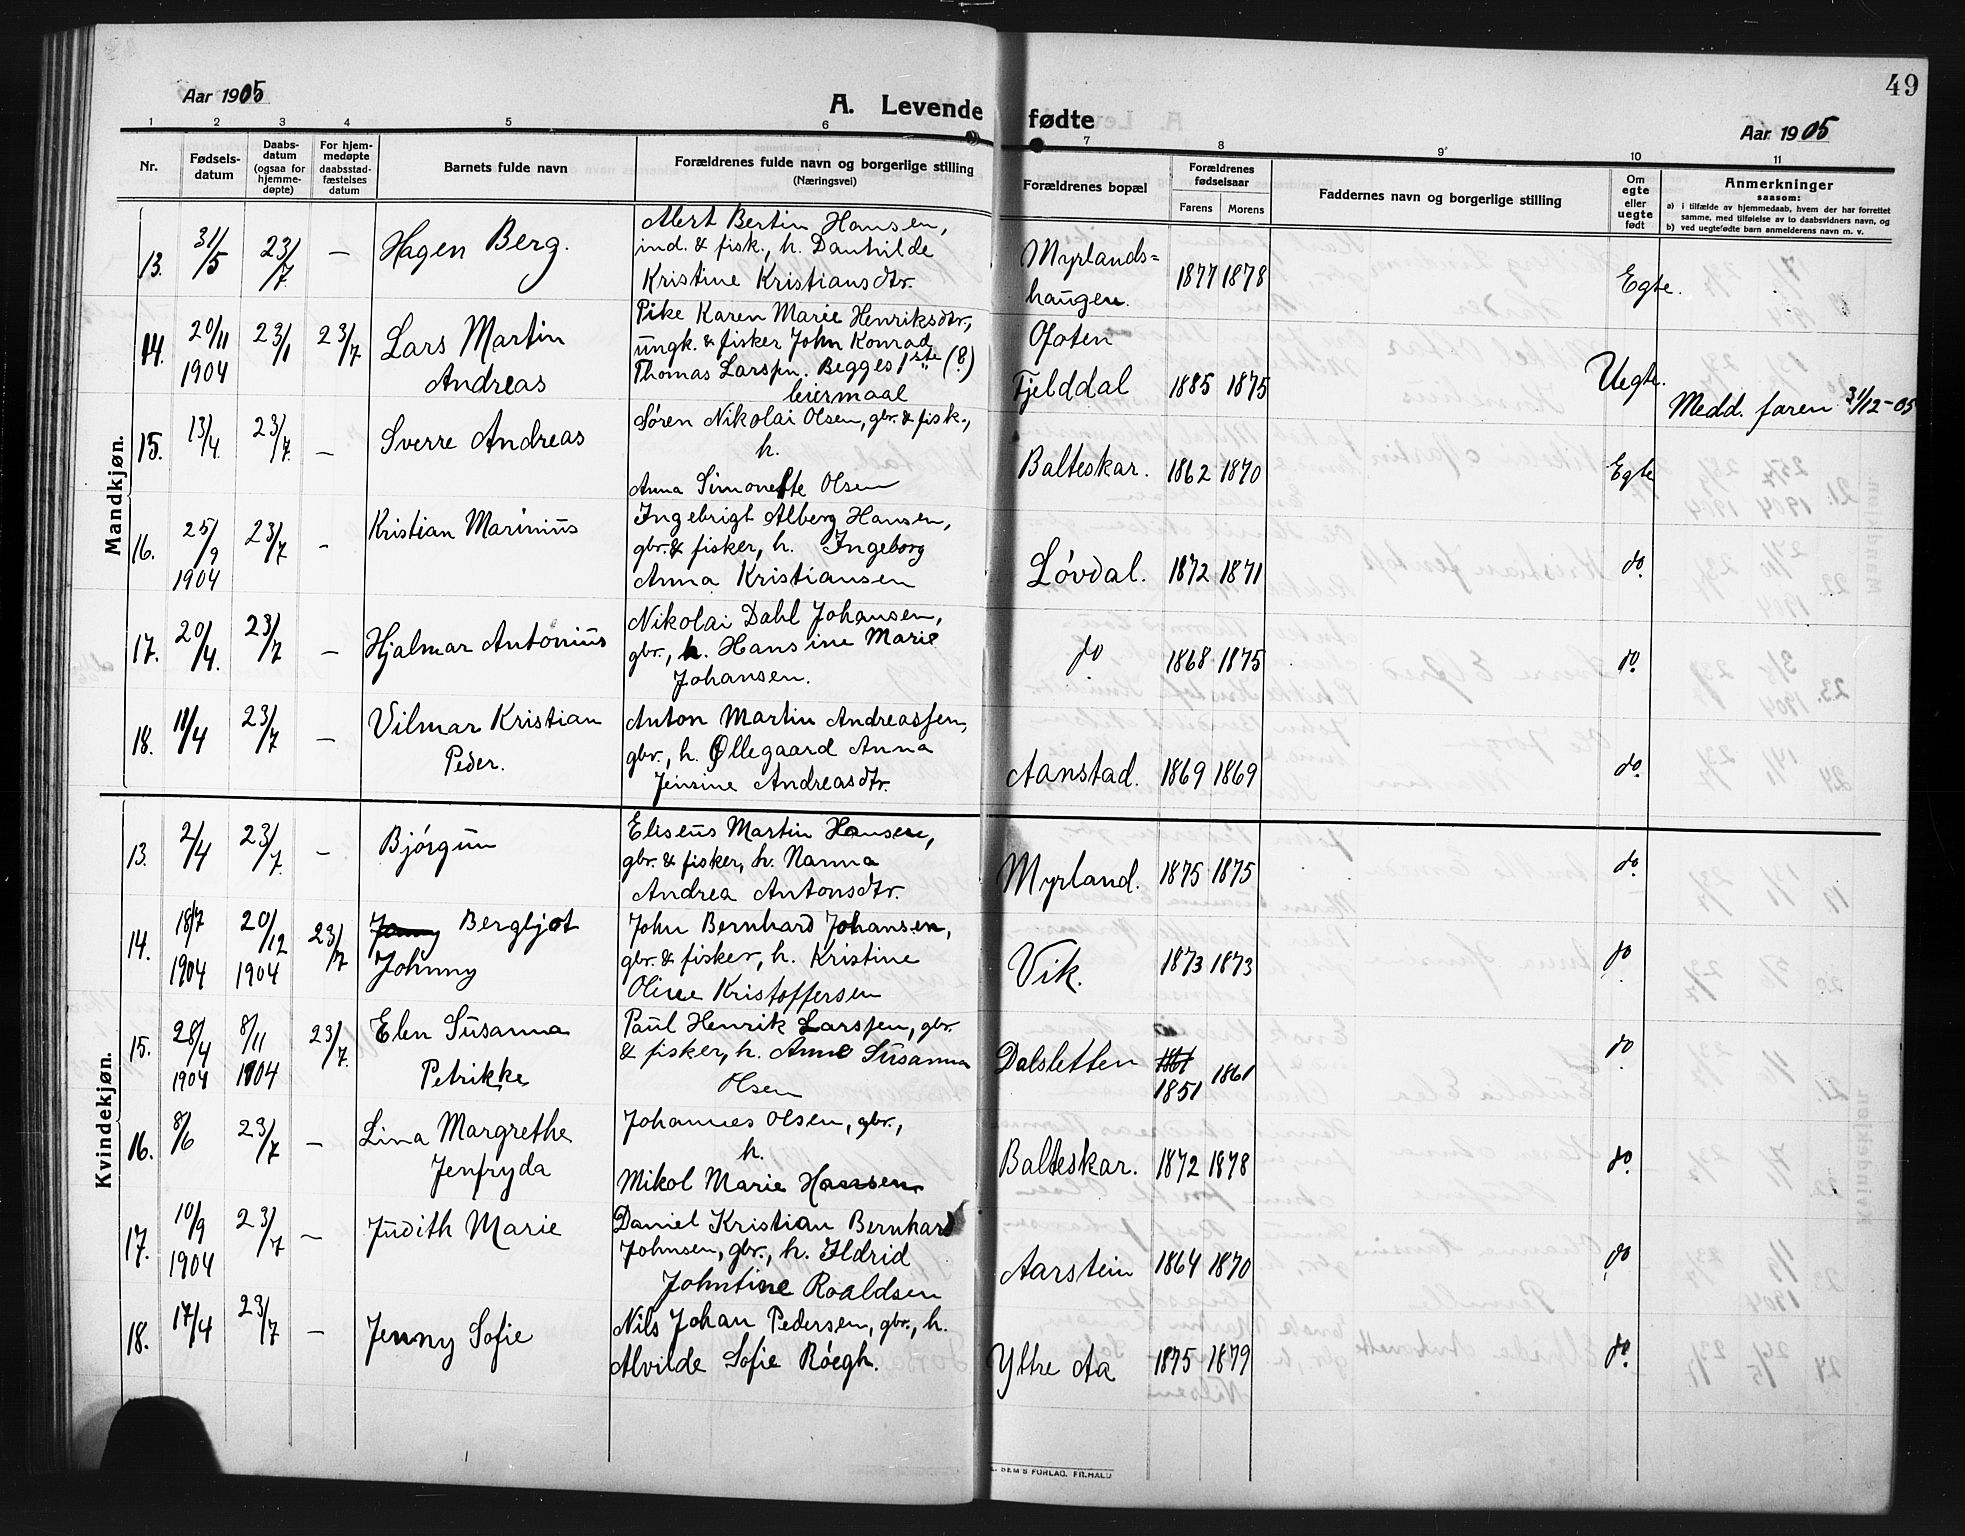 49
Aar 1905
A. Levende fødte
Aar 1905
1 2 3 4 5 6 7 8 9 10 11
Nr.
Fødsels-
datum
Daabs-
datum
(ogsaa for
hjemme-
døpte)
For hjem-
medøpte
daabsstad-
fæstelses
datum
Barnets fulde navn
Forældrenes fulde navn og borgerlige stilling
(Næringsvei)
Forældrenes bopæl
Forældrenes
fødselsaar
Farens Morens
Faddernes navn og borgerlige stilling
Om
egte
eller
uegte
født
Anmerkninger
saasom:
a) i tilfælde av hjemmedaab, hvem der har forrettet
samme, med tilføielse av to daabsvidners navn, og
b) ved uegtefødte barn anmelderens navn m. v.
Mandkjøn.
13. 31/5 23/7 — Hagen Berg.
Alert Bertin Hansen,
ind. & fisk., h. Danhilde
Kristine Kristiansdtr.
Myrlands=
haugen. 1877 1878 Egte.
14. 20/11 1904 23/1 23/7 Lars Martin
Andreas
Pike Karen Marie Henriksdtr,
ungk. & fisker John Konrad
Thomas Larssen. Begges 1ste (?)
leiermaal
Ofoten
Fjelddal 1885 1875 Uegte.
Medd. faren 31/12-05
15. 13/4 23/7 — Sverre Andreas
Søren Nikolai Olsen, gbr. & fisk.,
h.
Anna Simonette Olsen
Balteskar. 1862 1870 Egte
16. 25/9 1904 23/7 - Kristian Marinius
Ingebrigt Alberg Hansen,
gbr. & fisker, h. Ingeborg
Anna Kristiansen
Løvdal. 1872 1871 do.
17. 20/4. 23/7 — Hjalmar Antonius
Nikolai Dahl Johansen,
gbr., h. Hansine Marie
Johansen.
do 1868 1875 do.
18. 11/4 23/7 — Vilmar Kristian
Peder.
Anton Martin Andreassen,
gbr., h. Øllegaard Anna
Jensine Andreasdtr.
Aanstad. 1869 1869 do.
Kvindekjøn.
13. 2/4 23/7 — Bjørgun
Eliseus Martin Hansen,
gbr. & fisker, h. Nanna
Andrea Antonsdtr.
Myrland. 1875 1875 do.
14. 18/7 1904 20/12 1904 23/7 Jonny Bergljot
Johnny
John Bernhard Johansen,
gbr. & fisker, h. Kristine
Oline Kristoffersen
Vik. 1873 1873 do.
15. 28/4 1904 8/11 1904 23/7. Elen Susanna
Petrikke
Paul Henrik Larssen, gbr.
& fisker, h. Anne Susanna
Olsen
Dalsletten 1861
1851 1861 do.
16. 8/6 23/7 — Lina Margrethe
Jenfryda
Johannes Olsen, gbr.,
h.
Mikol Marie Hansen
Balteskar. 1872 1878 do.
17. 10/9 1904 23/7 — Judith Marie
Daniel Kristian Bernhard
Johnsen, gbr., h. Ildrid
Johntine Roaldsen
Aarstein 1864 1870 do
18. 17/4 23/7 — Jenny Sofie
Nils Johan Pedersen, gbr., h.
Alvilde Sofie Røegh.
Yttre Aa 1875 1879 do.
SEM'S FORLAG, FR.HALD